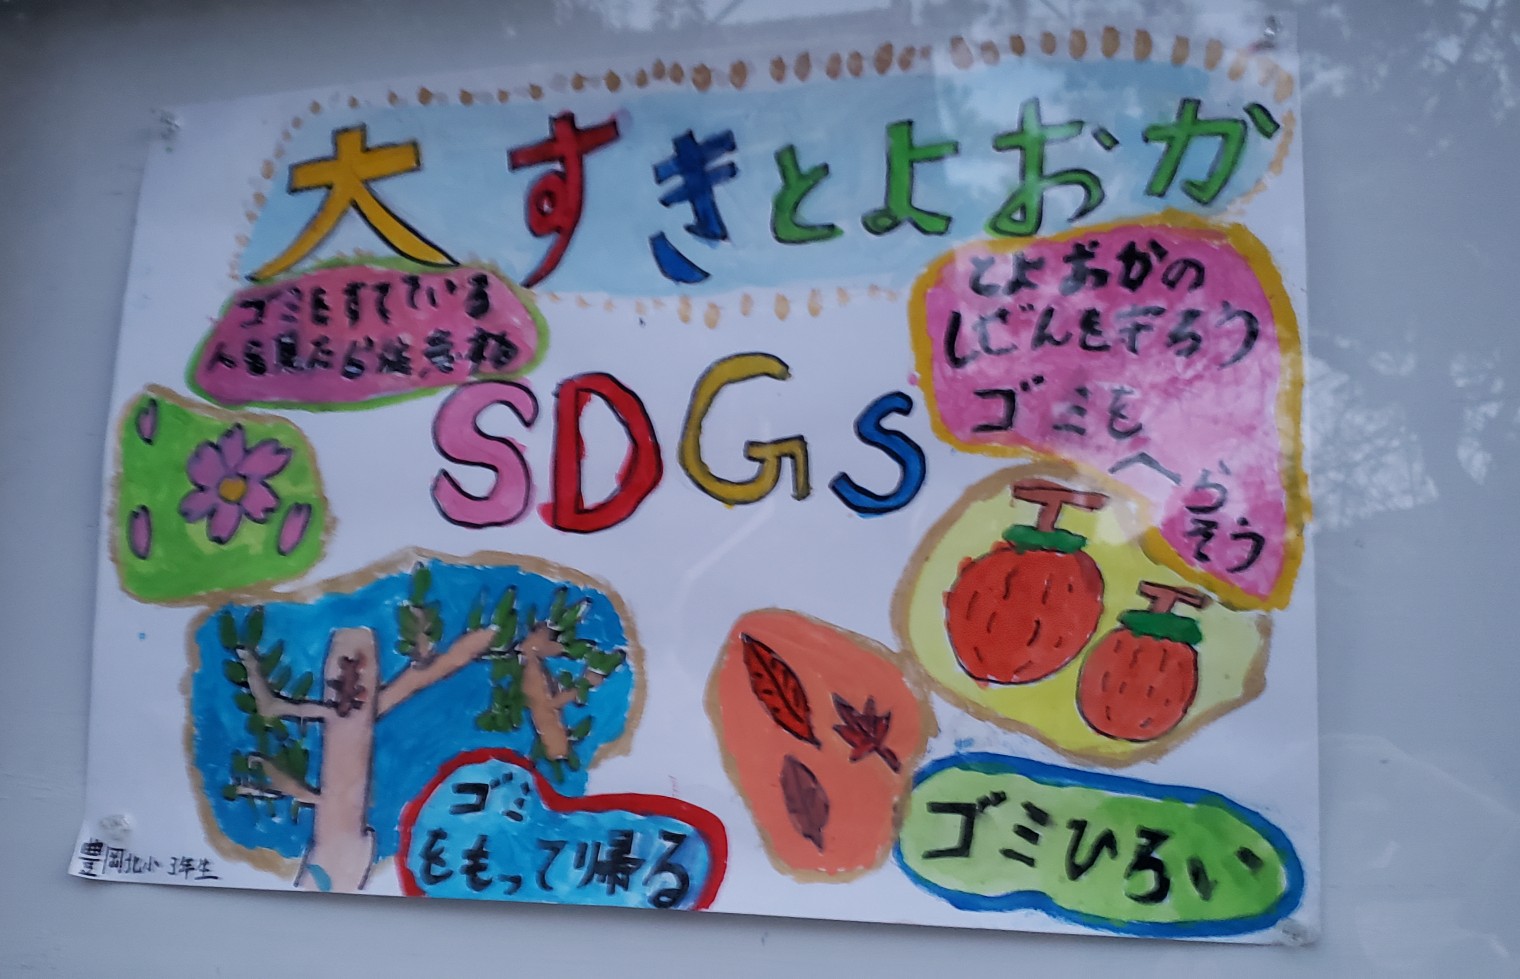 大すきとよおか
ゴミをすてている
人を見たら注意する
とよおかの
しぜんを守ろう
ゴミを
へら
そう
SDGs
ゴミ
をもって帰る
ゴミひろい
豊岡北小 3年生